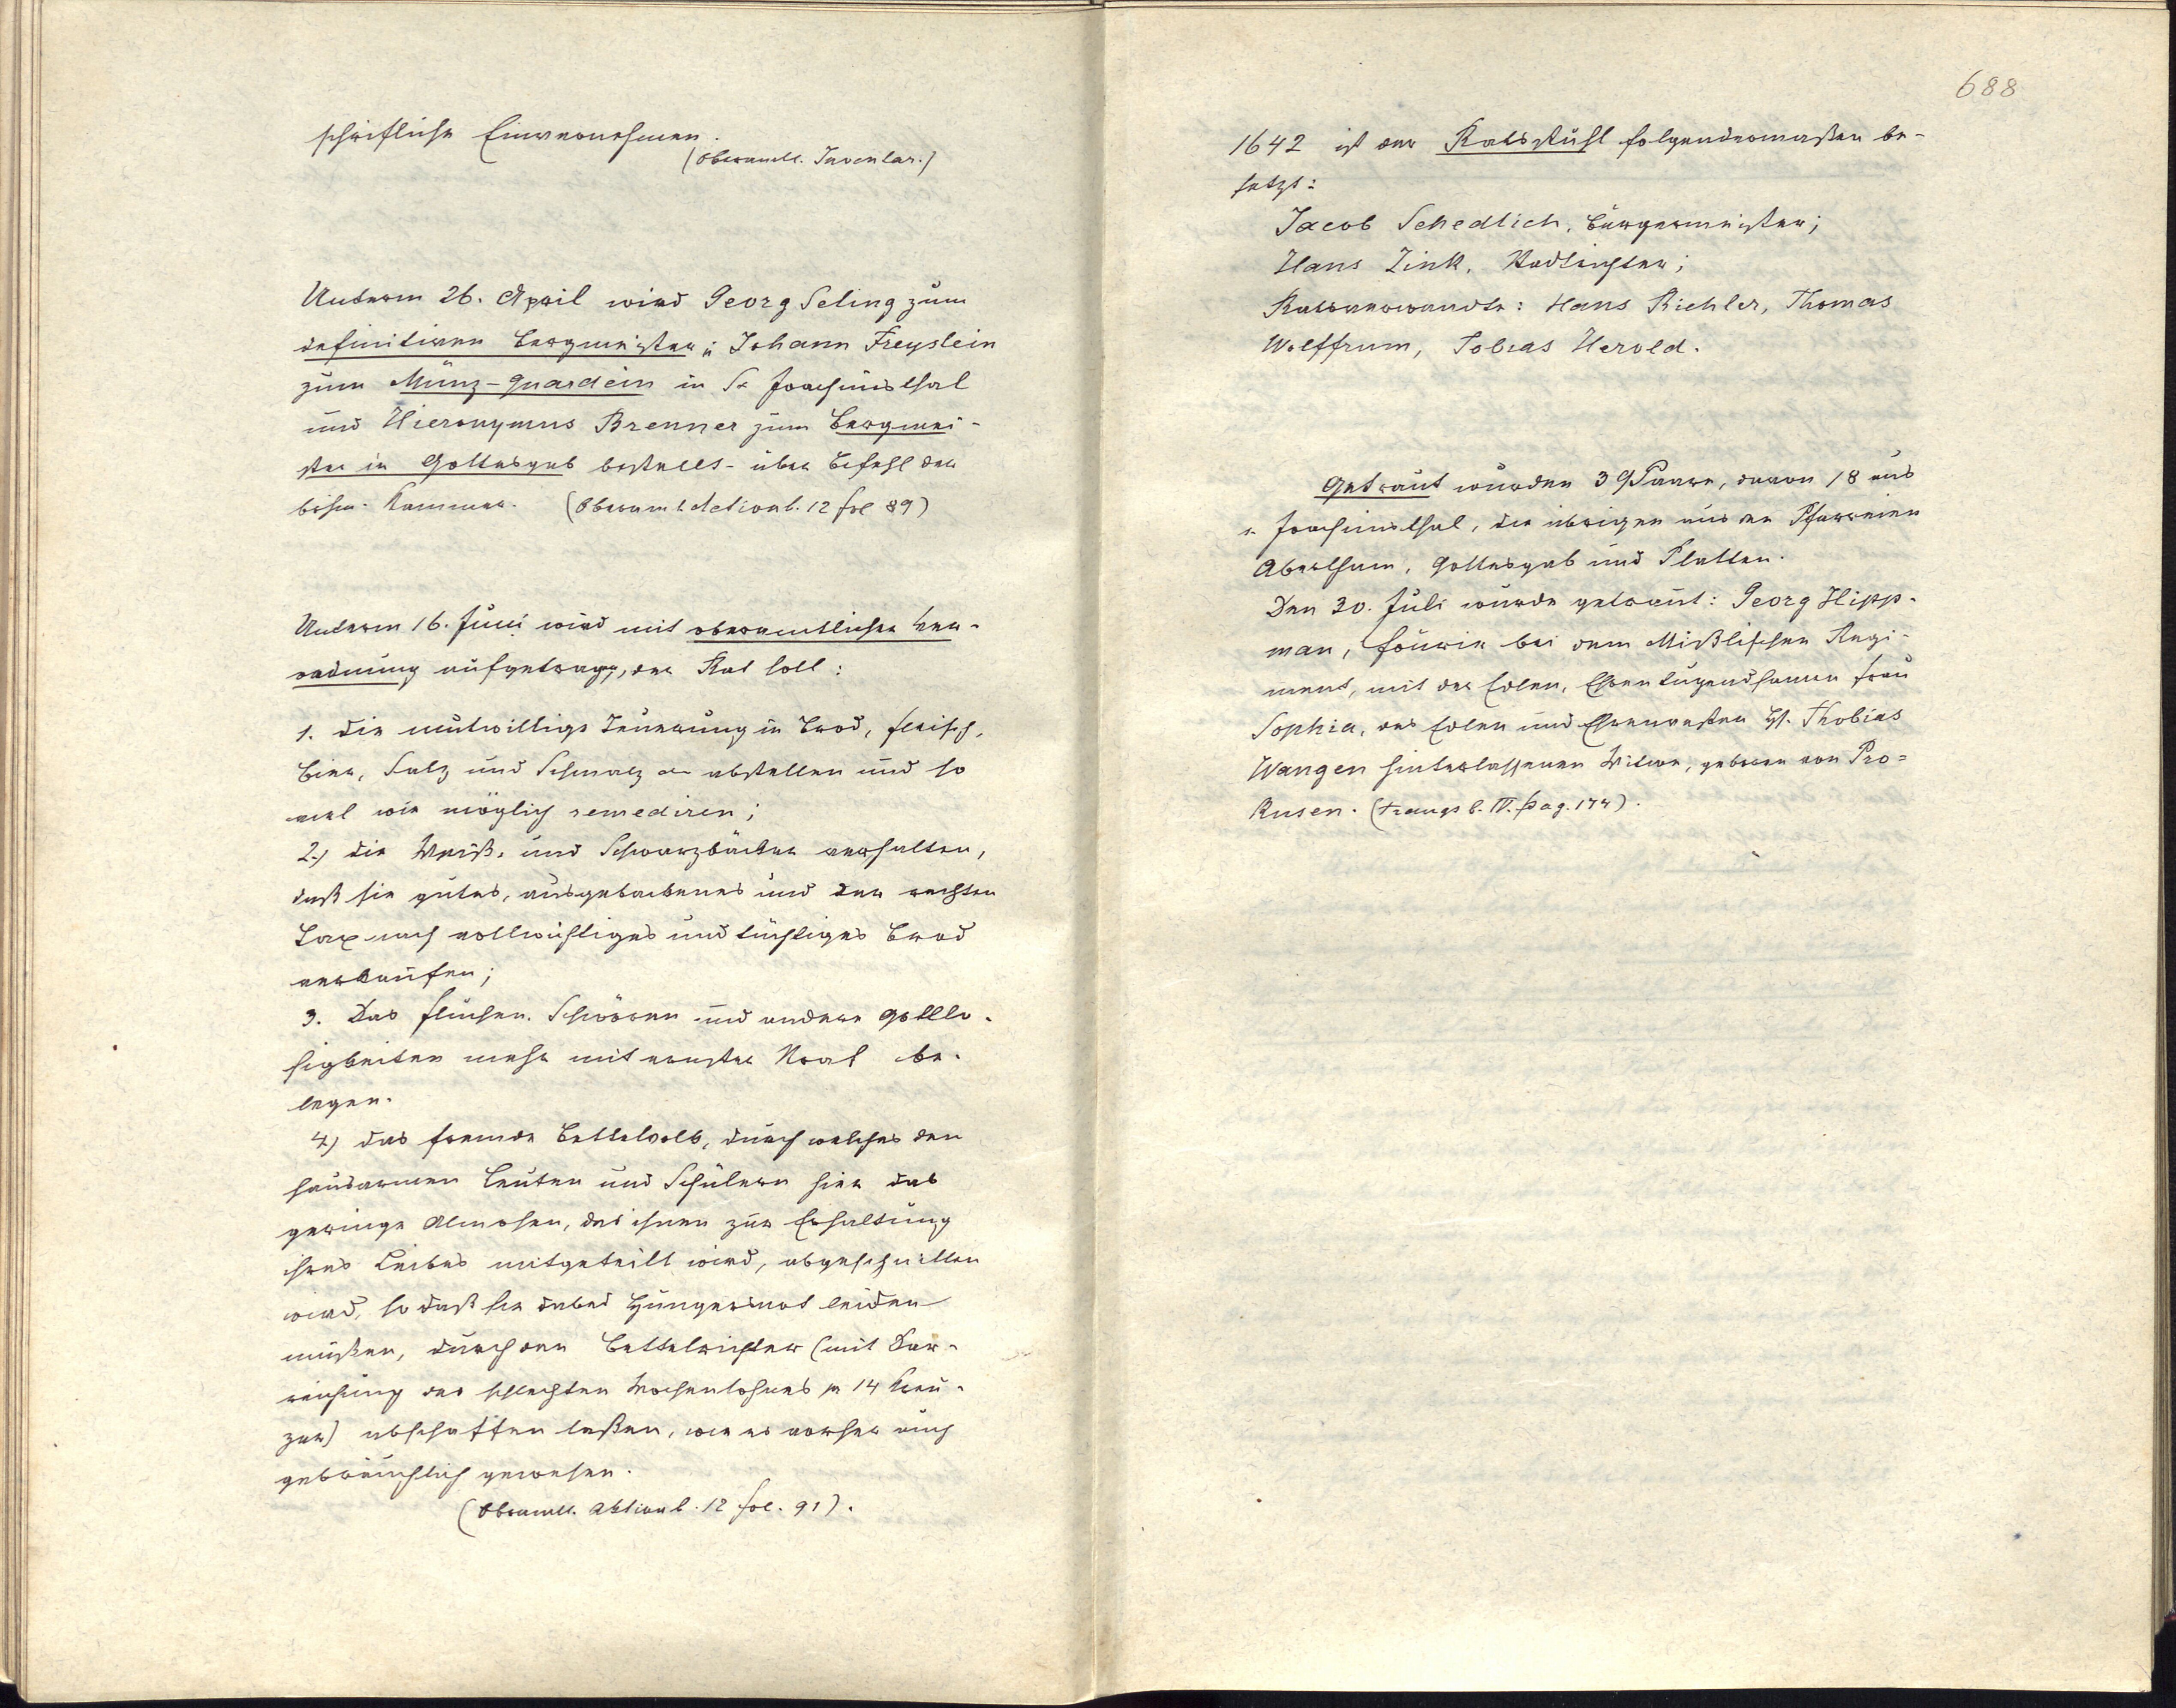 schriftliche Einvernehmen.
(Oberamtl. Inventar.)
Unterm 26. April wird Georg Seling zum
definitiven Bergmeister; Johann Freystein
zum Münz-Guardein in St Joachimsthal
und Hieronymus Brenner zum Bergmei-
ster in Gottesgab bestellt - über Befehl der
böhm. Kammer. (Oberamt Actionb. 12 fol 89)
Unterm 16. Juni wird mit oberamtlicher Ver-
ordnung aufgetragen, der Rat soll:
1. die mutwillige Teuerung in Brod, Fleisch,
Bier, Salz und Schmalz abstellen und so
viel wie möglich remediren;
2.) die Weiß- und Schwarzbäcker verhalten,
daß sie gutes, ausgebackenes und der rechten
Tax nach vollwichtiges und tüchtiges Brod
verkaufen;
3. Das Fluchen, Schwören und andere Gottlo-
sigkeiten mehr mit ernster Straf be-
legen.
4.) das fremde Bettelvolk, durch welches den
hausarmen Leuten und Schülern hier das
geringe Almosen, das ihnen zur Erhaltung
ihres Leibes mitgeteilt wird, abgeschnitten
wird, so daß sie dabei Hungersnot leiden
müßen, durch den Bettelrichter (mit Dar-
reichung des schlechten Wochenlohnes pr 14 Kreu-
zer) abschaffen laßen, wie es vorher auch
gebräuchlich gewesen.
(Oberamtl. Aktionb. 12 fol. 91).
688
1642 ist der Ratsstuhl folgendermaßen be-
setzt:
Jacob Schedlich, Bürgermeister;
Hans Zink, Stadtrichter;
Ratsverwandte: Hans Richter, Thomas
Wolffrum, Tobias Herold.
Getraut wurden 39 Paare, davon 18 aus
St. Joachimsthal, die übrigen aus den Pfarreien
Abertham, Gottesgab und Platten.
Den 30. Juli wurde getraut: Georg Hipp-
man, Fourir bei dem Mißlischen Regi-
ment, mit der Edlen, Ehrentugendsamen Frau
Sophia, des Edlen und Ehrenvesten H. Thobias
Wangen hinterlassenen Witwe, geboren von Pro-
Rusen. (Traugs b. IV. pag. 174).